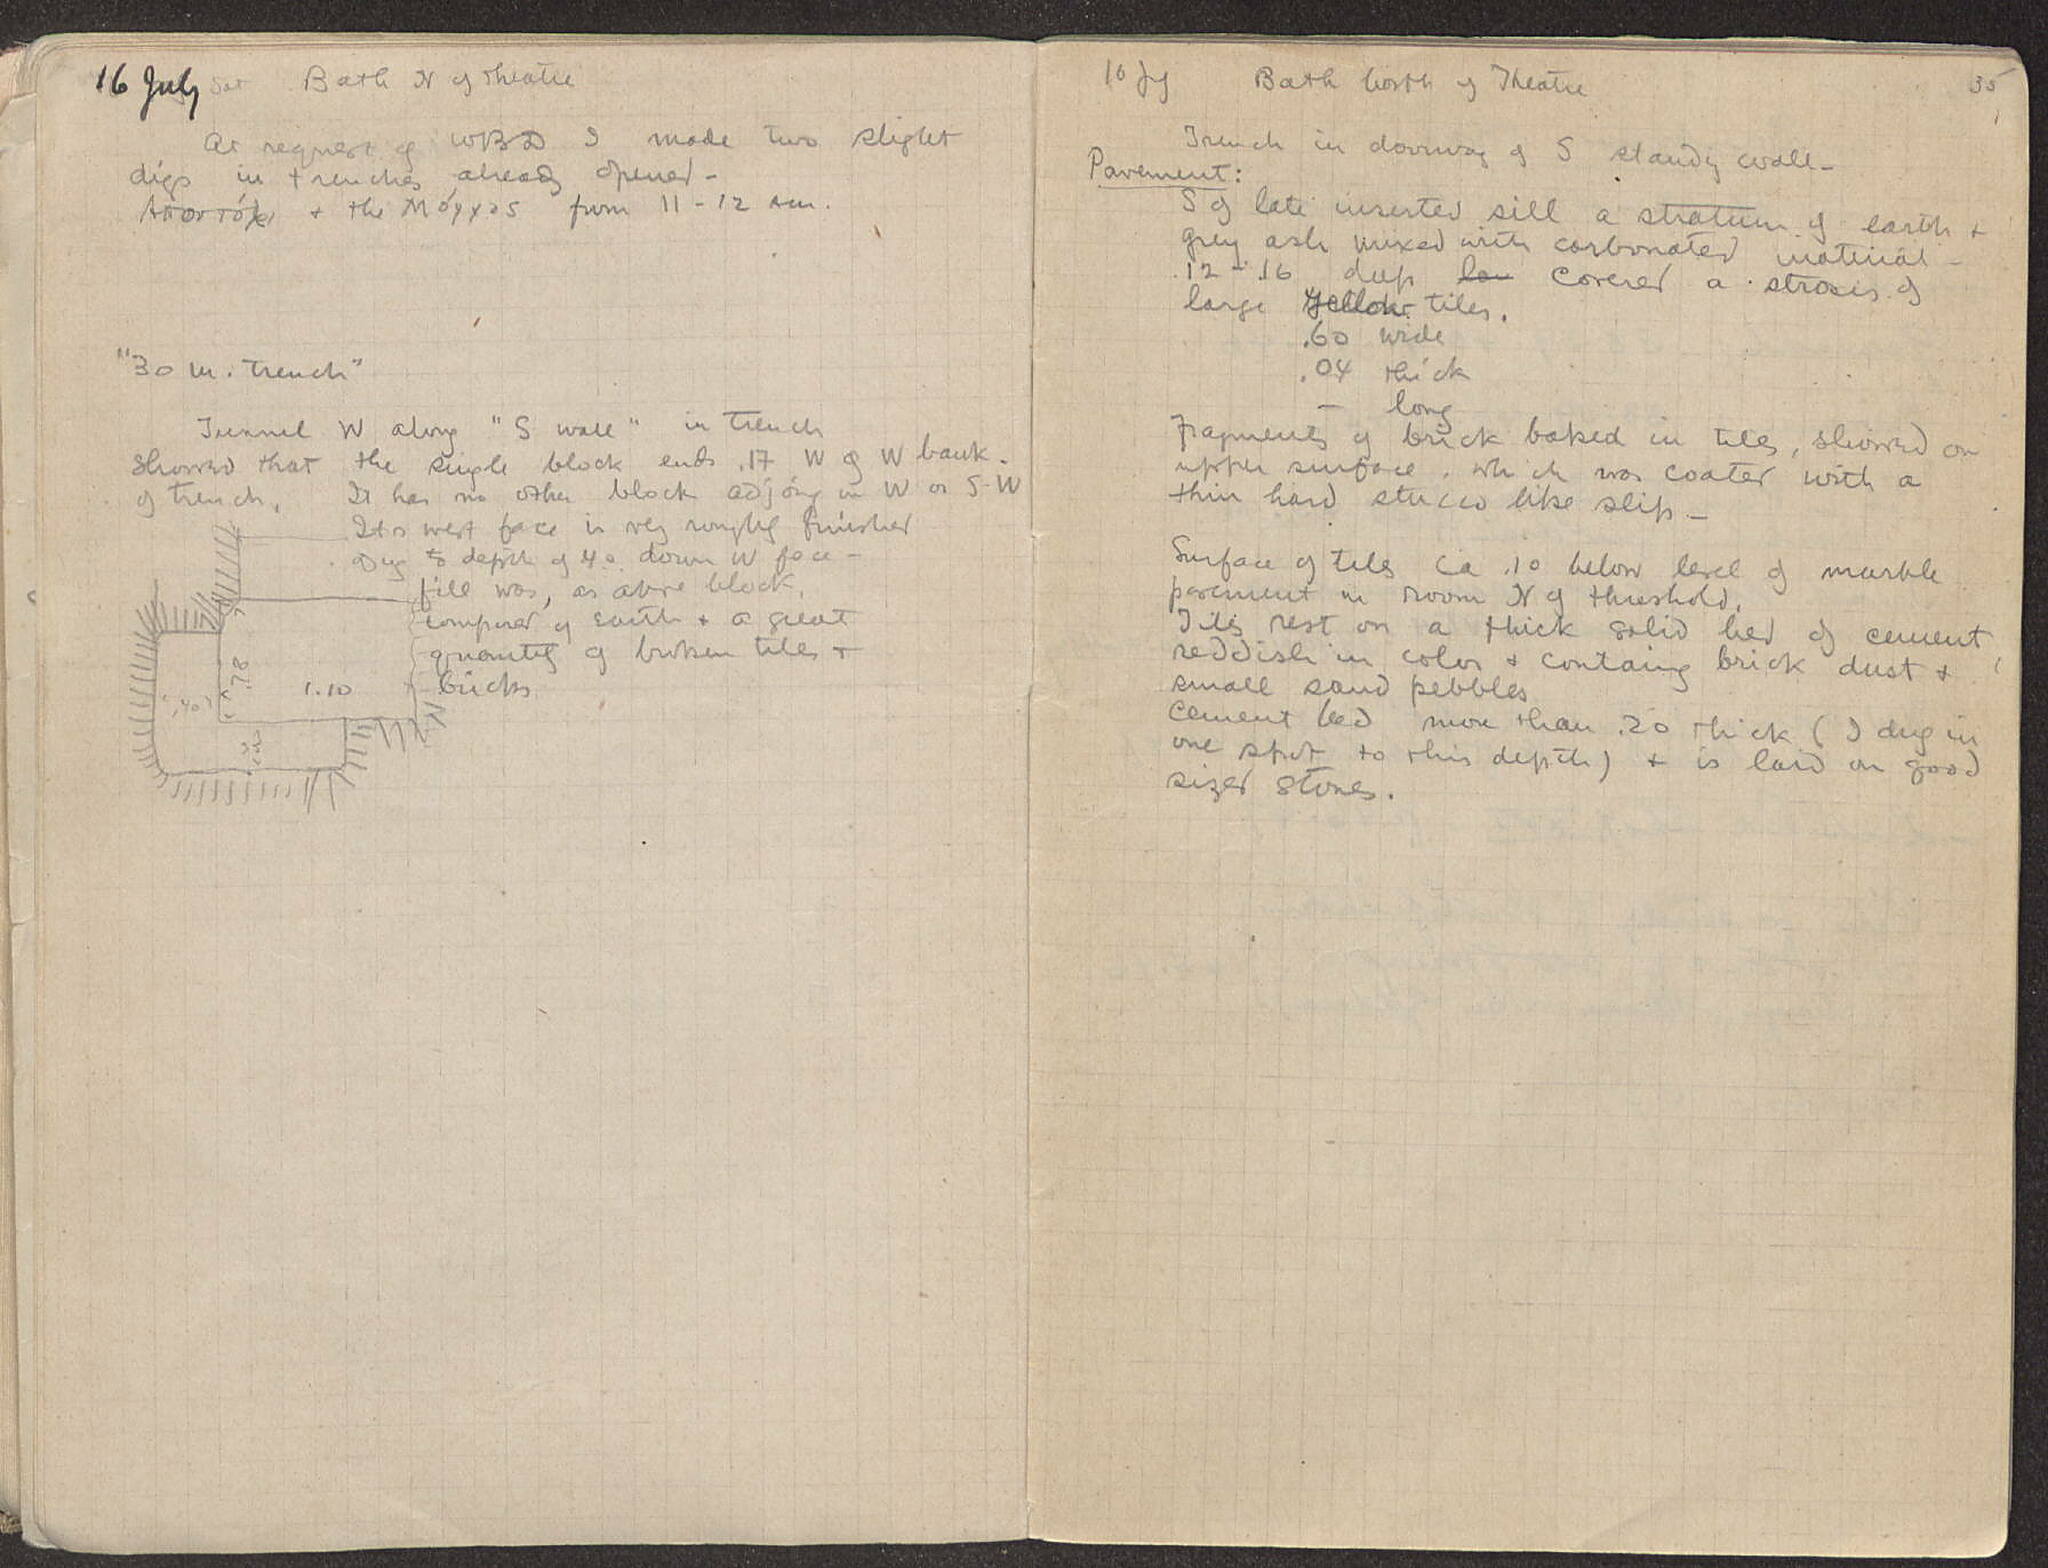 16 July Sat Bath N of Theatre
At request of WBD I made two slight
digs in trenches already opened -
+ the Μόγγος from 11-12 AM.
"30 m. trench"
Tunnel W along "S wall" in trench
showed that the single block ends .17 W of W bank
of trench. It has no other block adjong on W or S-W
Its west face is very roughly finished
Dug to depth of 40 down W face -
fill was, as above block,
composed of earth + a great
quantity of broken tiles +
bricks
.78
1.10
.40
16 Jy Bath North of Theatre 35
Trench in doorway of S standg wall -
Pavement:
S of late inserted sill a stratum of earth +
grey ash mixed with carbonated material -
.12 - .16 deep lay covered a strosis of
large yellow tiles.
.60 wide
.04 thick
- long
Fragments of brick baked in tiles, showed on
upper surface, which was coated with a
thin hard stucco like slip -
Surface of tiles ca .10 below level of marble
pavement in room N of threshold.
Tiles rest on a thick solid bed of cement
reddish in color + containg brick dust +
small sand pebbles
Cement bed more than .20 thick (I dug in
one spot to this depth) + is laid on good
sized stones.